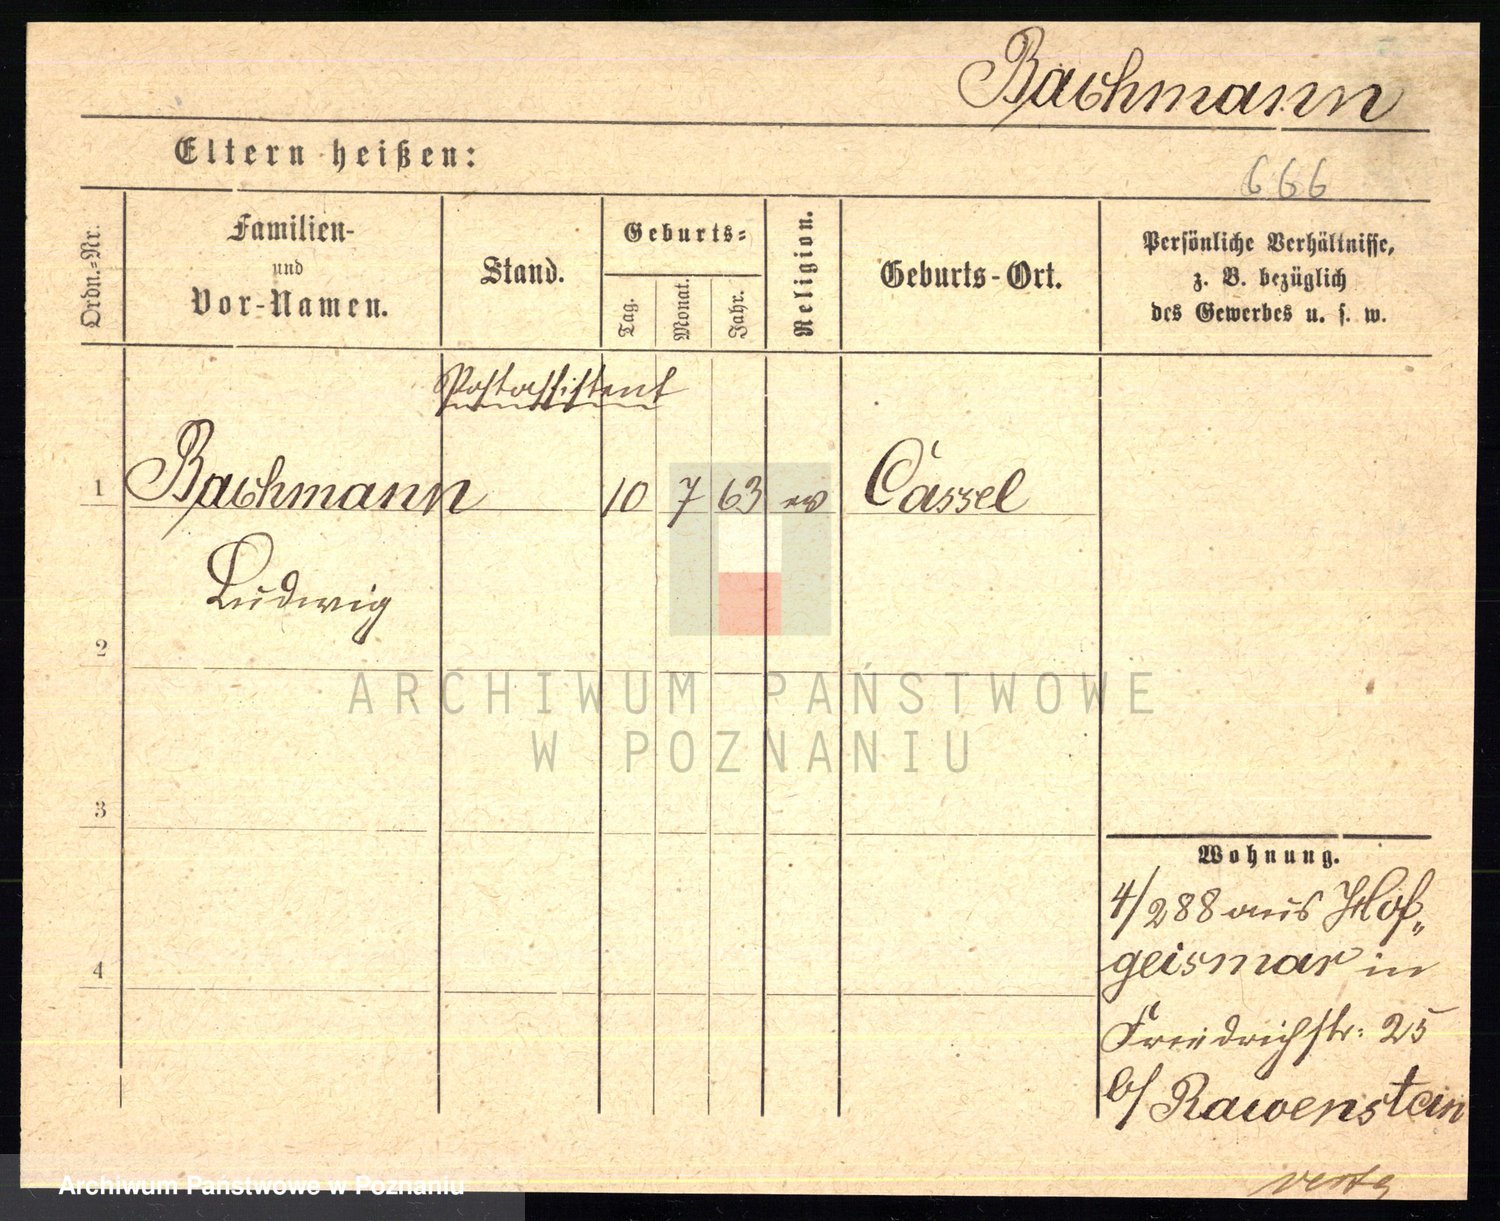 Bachmann
Eltern heißen:
666
Ordn.-Nr.
Familien-
und
Vor-Namen.
Stand.
Geburts-
Tag.
Monat.
Jahr.
Religion.
Geburts-Ort.
Persönliche Verhältnisse,
z. B. bezüglich
des Gewerbes u. s. w.
Postassistent
1 Bachmann 10 7 63 ev Cassel
Ludwig
2
ARCHIWUM PAŃSTWOWE
W POZNANIU
3
Wohnung.
4/288 aus Hof„
geismar in
4
Friedrichstr: 25
b/ Rawenstein
Archiwum Państwowe w Poznaniu